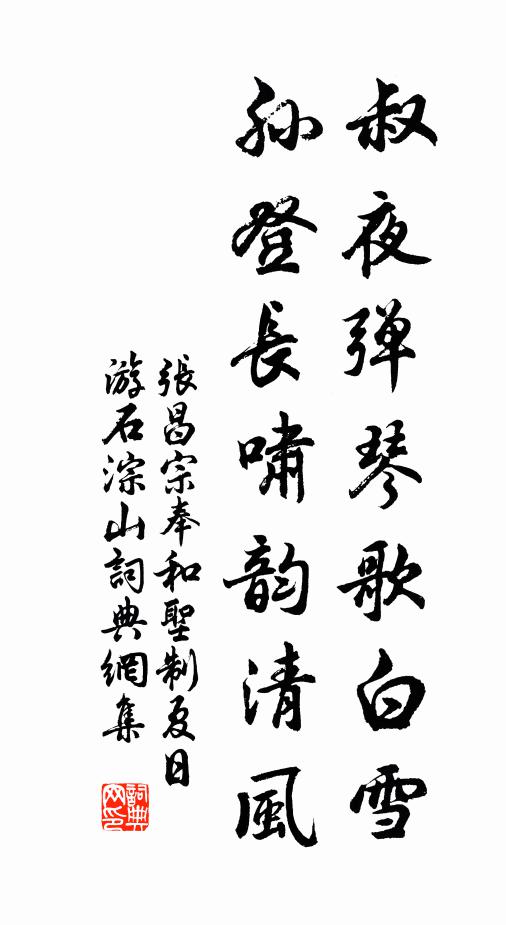 叔夜弹琴歌白雪
孙登長嘯韵清風
張昌宗奉和聖制夏日
游石淙山詞典網集
詞典网印